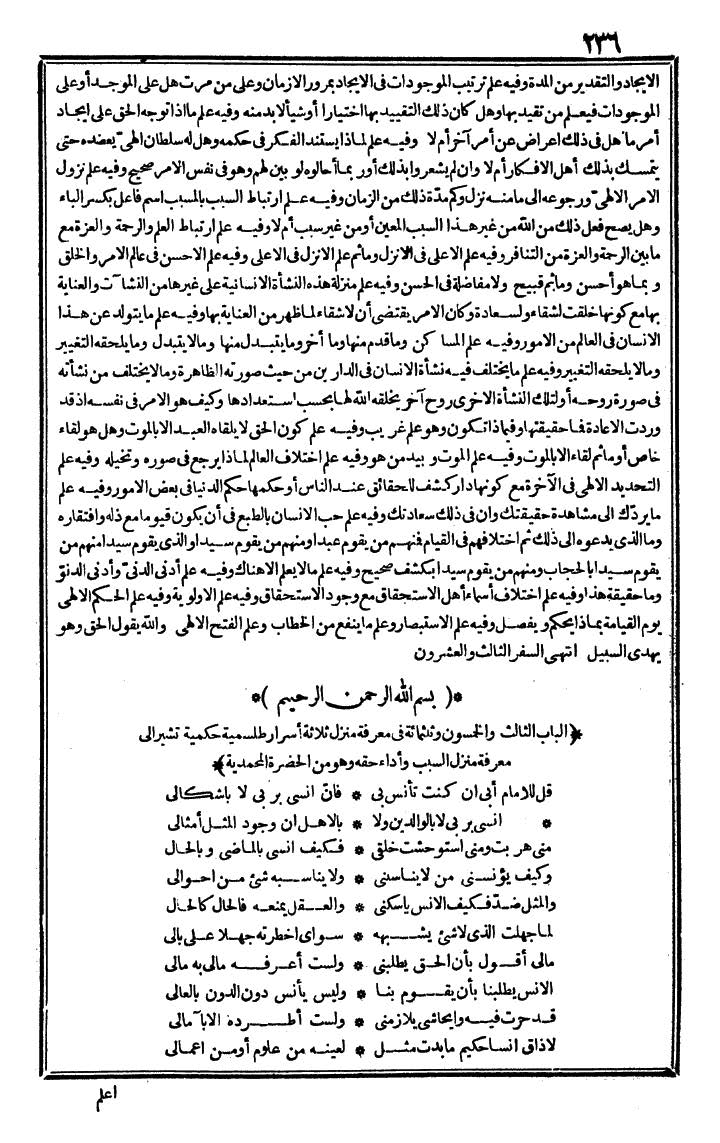 ٢٣٦
الايجاد والتقدير من المدة وفيه علم ترتيب الموجودات فى الايجاد بمرور الازمان وعلى من مرت هل على الموجد أو على
الموجودات فيعلم من تقيد بها وهل كان ذلك التقييد بها اختيارا أو شيأ لابد منه وفيه علم ما اذا توجه الحق على ايجاد
أمر ما هل فى ذلك اعراض عن أمر آخر أم لا وفيه علم لماذا يستند الفكر فى حكمه وهل له سلطان الهىّ يعضده حتى
يتمسك بذلك أهل الافكار أم لا وان لم يشعروا بذلك أور بما أحالوه لو بين لهم وهو فى نفس الامر صحيح وفيه علم نزول
الامر الالهىّ ورجوعه الى ما منه نزل وكم مدة ذلك من الزمان وفيه علم ارتباط السبب بالمسبب اسم فاعل بكسر الباء
وهل يصح فعل ذلك من الله من غير هذا السبب المعين أو من غير سبب أم لا وفيه علم ارتباط العلم والرحمة والعزة مع
ما بين الرحمة والعزة من التنافر وفيه علم الاعلى فى الانزل وما ثم علم الانزل فى الاعلى وفيه علم الاحسن فى عالم الامر والخلق
و بما هو أحسن وما ثم قبيح ولا مفاضلة فى الحسن وفيه علم منزلة هذه النشأة الانسانية على غيرها من النشآت والعناية
بها مع كونها خلقت لشقاء ولسعادة وكان الامر يقتضى أن لا شقاء لما ظهر من العناية بها وفيه علم ما يتولد عن هذا
الانسان فى العالم من الامور وفيه علم المساكن وما قدم منها وما أخر وما يتبدل منها وما لا يتبدل وما يلحقه التغيير
وما لا يلحقه التغيير وفيه علم ما يختلف فيه نشأة الانسان فى الدارين من حيث صورته الظاهرة وما لا يختلف من نشأته
فى صورة روحه أو لتلك النشأة الاخرى روح آخر يخلقه الله لها بحسب استعدادها وكيف هو الامر فى نفسه اذ قد
وردت الاعادة فما حقيقتها وفيماذا تكون وهو علم غريب وفيه علم كون الحق لا يلقاه العبد الا بالموت وهل هو لقاء
خاص أو ما ثم لقاء الا بالموت وفيه علم الموت و بيد من هو وفيه علم اختلاف العالم لماذا يرجع فى صوره وتخيله وفيه علم
التحديد الالهى فى الآخرة مع كونها دار كشف للحقائق عند الناس أو حكمها حكم الدنيا فى بعض الامور وفيه علم
ما يردّك الى مشاهدة حقيقتك وان فى ذلك سعادتك وفيه علم حب الانسان بالطبع فى أن يكون قيوما مع ذله وافتقاره
وما الذى يدعوه الى ذلك ثم اختلافهم فى القيام فمنهم من يقوم عبدا ومنهم من يقوم سيدا والذى يقوم سيدا منهم من
يقوم سيدا بالحجاب ومنهم من يقوم سيدا بكشف صحيح وفيه علم ما لا يعلم الا هناك وفيه علم أدنى الدنىّ وأدنى الدنوّ
وما حقيقة هذا وفيه علم اختلاف أسماء أهل الاستحقاق مع وجود الاستحقاق وفيه علم الاولوية وفيه علم الحكم الالهى
يوم القيامة بماذا يحكم و يفصل وفيه علم الاستبصار وعلم ما ينفع من الخطاب وعلم الفتح الالهى والله يقول الحق وهو
يهدى السبيل انتهى السفر الثالث والعشرون
*( بسم الله الرحمن الرحيم )*
﴿الباب الثالث والخمسون وثلثمائة فى معرفة منزل ثلاثة أسرار طلسمية حكمية تشير الى
معرفة منزل السبب وأداء حقه وهو من الحضرة المحمدية﴾
قل للامام أبى ان كنت تأنس بى * فانّ انسى بربى لا باشكالى
* انسى بربى لا بالوالدين ولا * بالاهل ان وجود المثل أمثالى
منى هربت ومنى استوحشت خلقى * فكيف انسى بالماضى و بالحال
وكيف يؤنسنى من لا يناسبنى * ولا يناسبه شئ من احوالى
والمثل ضدّ فكيف الانس يا سكنى * والعقل يمنعه فالحال كالحال
لما جهلت الذى لا شئ يشبهه * سواى اخطرته جهلا على بالى
مالى أقول بأن الحق يطلبنى * ولست أعرفه مالى به مالى
الانس يطلبنا بأن يقوم بنا * وليس يأنس دون الدون بالعالى
قد حرت فيه وايحاشى يلازمنى * ولست أطرده الا بآمالى
لا ذاق انسا حكيم ما بدت مثل * لعينه من علوم أو من اعمالى
اعلم